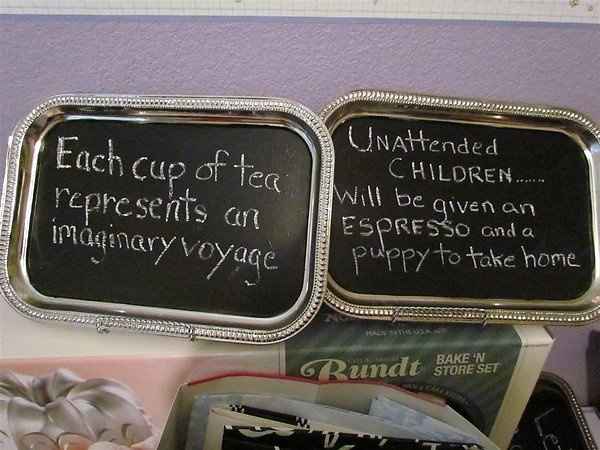 Each cup of tea
represents an
imaginary voyage
UNAttended
CHILDREN......
Will be given an
ESPRESSO and a
puppy to take home
MADE IN THE U.S.A.
Bundt
BAKE 'N
STORE SET